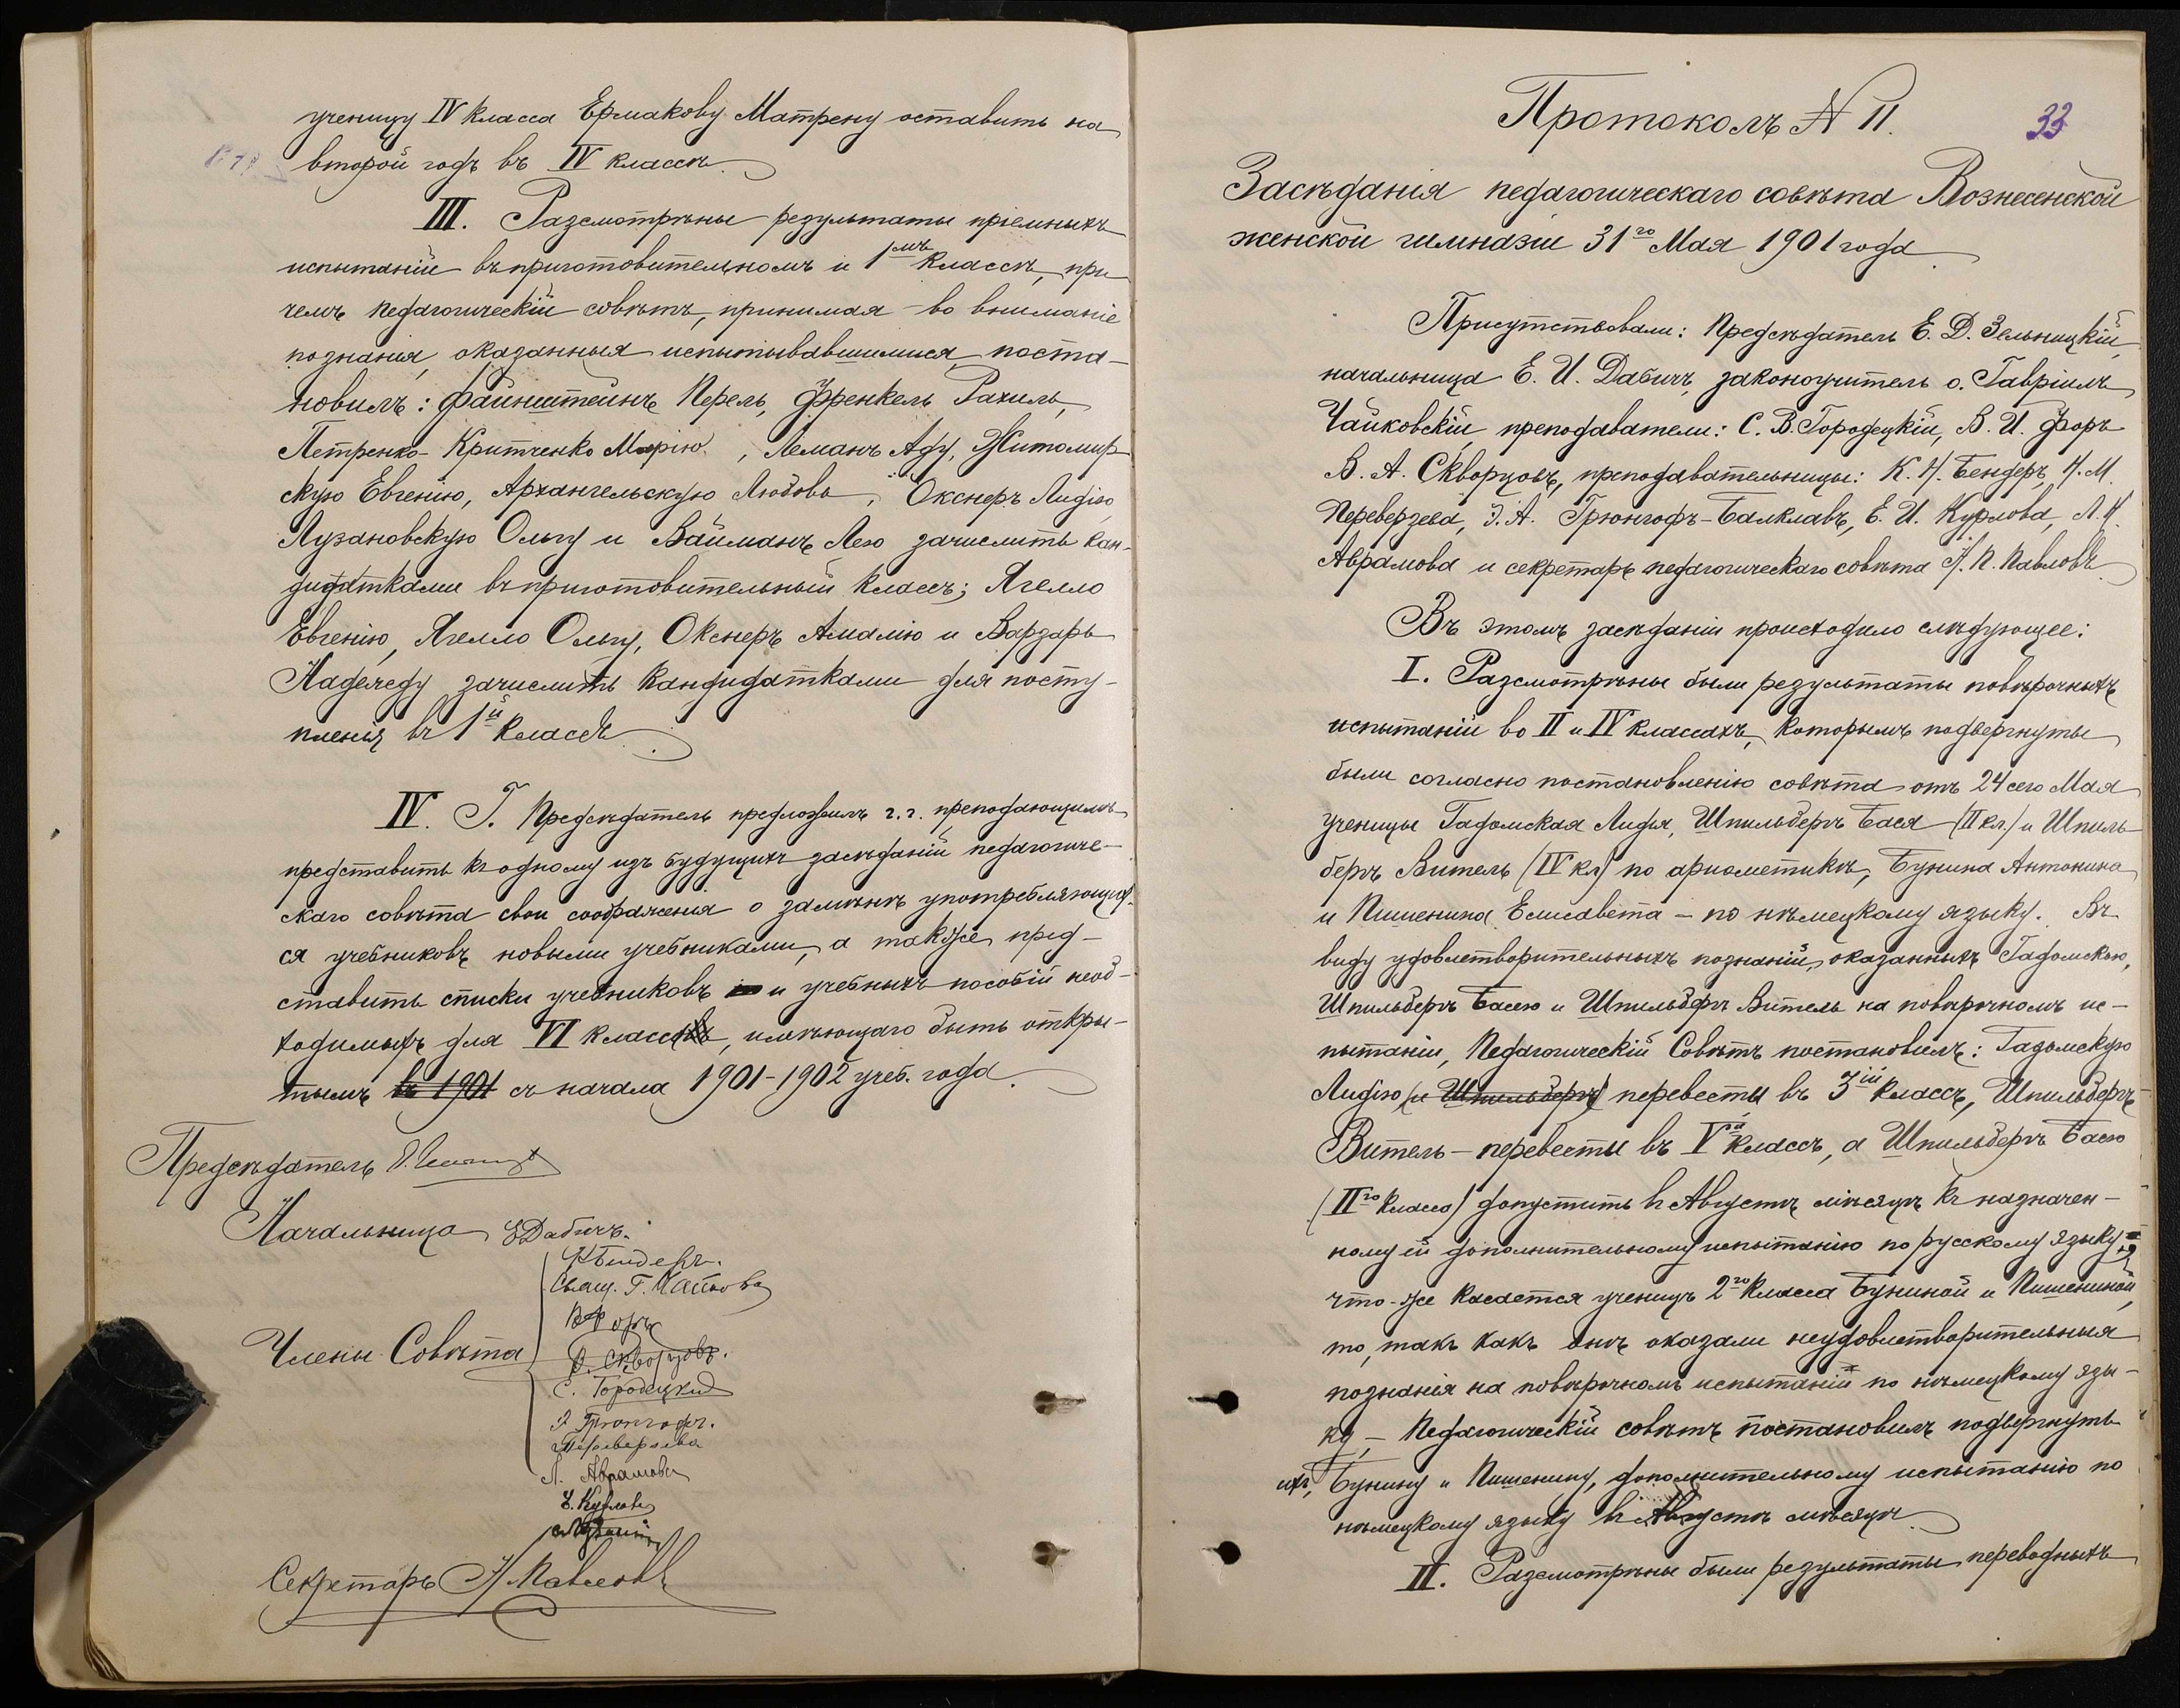 ученицу IV класса Ермакову Матрену оставить на
второй годъ въ IV классѣ.
III. Разсмотрѣны результаты пріемныхъ
испытаній въ приготовительномъ и 1мъ классѣ, при
чемъ педагогическій совѣтъ, принимая во вниманіе
познанія, оказанныя испытывавшимися, поста-
новилъ: Файнштейнъ Перель, Френкель Рахиль,
Петренко-Критченко Марію, Леманъ Аду, Житомир
скую Евгенію, Архангельскую Любовь, Окснеръ Лидію,
Лузановскую Ольгу и Вайманъ Лею зачислить кан-
дидатками въ приготовительный классъ; Ягелло
Евгенію, Ягелло Ольгу, Окснеръ Амалію и Варзарь
Надежду зачислить кандидатками для посту-
пленія въ 1й классъ.
IV. Г. Предсѣдатель предложилъ г.г. преподающимъ
представить къ одному изъ будущихъ засѣданій педагогиче-
скаго совѣта свои соображенія о замѣнѣ употребляющих
ся учебниковъ новыми учебниками, а также пред-
ставить списки учебниковъ и учебныхъ пособій необ-
ходимыхъ для VI класса, имѣющаго быть откры-
тымъ въ 1901 съ начала 1901-1902 учеб. года.
Предсѣдатель
Начальница Е Дабичъ.
К Бендеръ.
Свящ. Г. Чайковск
В Форъ
Члены Совѣта
В. Скворцовъ.
С. Городецкій
Э Грюнгофъ.
Переверзева
Л. Аврамова
Е. Курлова
Секретарь Н Павловъ
Протоколъ N 11.
33
Засѣданія педагогическаго совѣта Вознесенской
женской гимназіи 31го Мая 1901 года.
Присутствовали: Предсѣдатель Е. Д. Зельницкій,
начальница Е. И. Дабичъ, законоучитель о. Гавріилъ
Чайковскій, преподаватели: С. В. Городецкій, В. И. Форъ
В. А. Скворцовъ, преподавательницы: К. Н. Бендеръ, Н. М.
Переверзева, Э. А. Грюнгофъ-Балклавъ, Е. И. Курлова, Л. Н.
Аврамова и секретарь педагогическаго совѣта Н. П. Павловъ.
Въ этомъ засѣданіи происходило слѣдующее:
I. Разсмотрѣны были результаты повѣрочныхъ
испытаній во II и IV классахъ, которымъ подвергнуты
были согласно постановленію совѣта отъ 24 сего Мая
ученицы Гадомская Лидія, Шпильбергъ Бася (II кл.) и Шпиль
бергъ Витель (IV кл) по ариѳметикѣ, Бунина Антонина
и Пишенина Елисавета - по нѣмецкому языку. Въ
виду удовлетворительныхъ познаній, оказанныхъ Гадомскою,
Шпильбергъ Басею и Шпильбергъ Витель на повѣрочномъ ис-
пытаніи, Педагогическій Совѣтъ постановилъ: Гадомскую
Лидію (и Шпильбергъ) перевести въ 3ій классъ, Шпильбергъ-
Витель - перевести въ Vый классъ, а Шпильбергъ Басю
(IIго класса) допустить въ Августѣ мѣсяцѣ къ назначен-
ному ей дополнительному испытанію по русскому языку;
что-же касается ученицъ 2го класса Буниной и Пишениной,
то, такъ какъ онѣ оказали неудовлетворительныя
познанія на повѣрочномъ испытаніи по нѣмецкому язы-
ку, - Педагогическій совѣтъ постановилъ подвергнуть
ихъ, Бунину и Пишенину, дополнительному испытанію по
нѣмецкому языку въ Августѣ мѣсяцѣ.
II. Разсмотрѣны были результаты переводныхъ